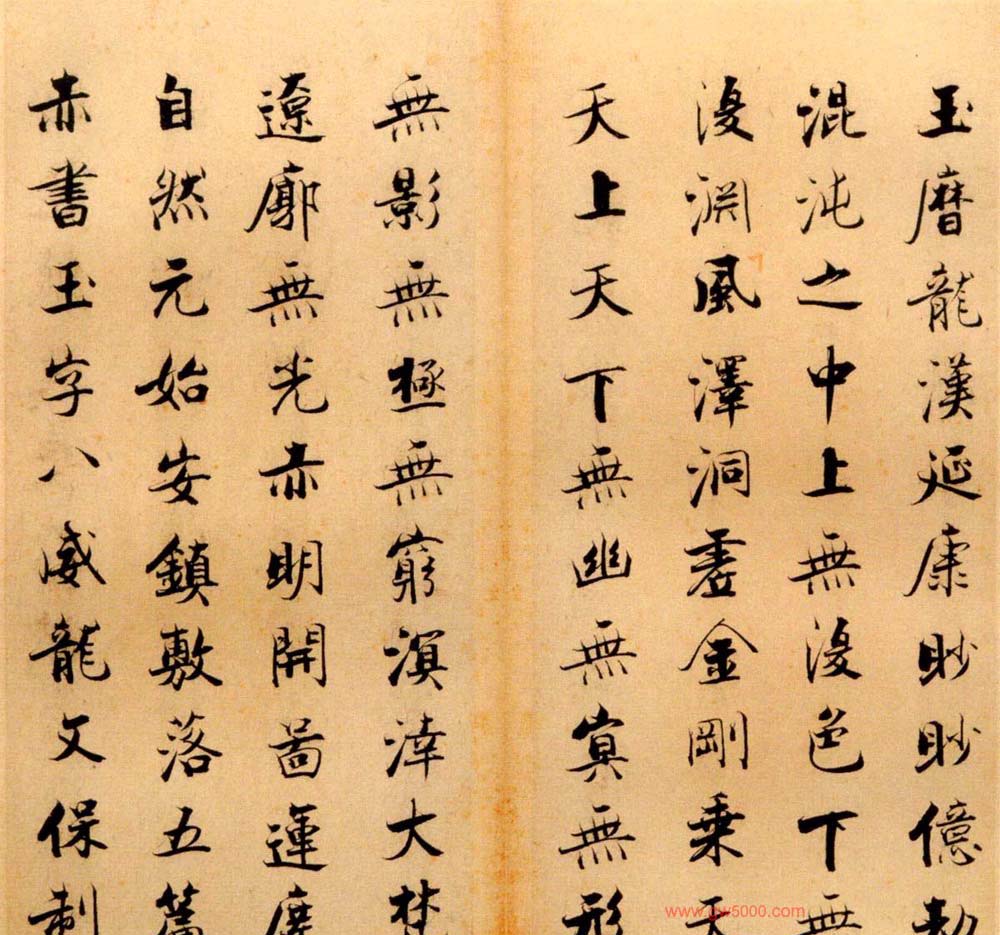 玉曆龍漢延康眇眇億劫
混沌之中上無復色下無
復淵風澤洞虛金剛乗天
天上天下無幽無冥無形
無影無極無窮溟涬大梵
遼廓無光赤明開啚運度
自然元始安鎮敷落五篇
赤書玉字八威龍文保制
www.gw5000.com